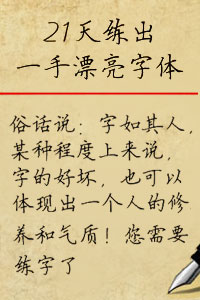 21天练出
一手漂亮字体
俗话说：字如其人，
某种程度上来说，
字的好坏，也可以
体现出一个人的修
养和气质！您需要
练字了